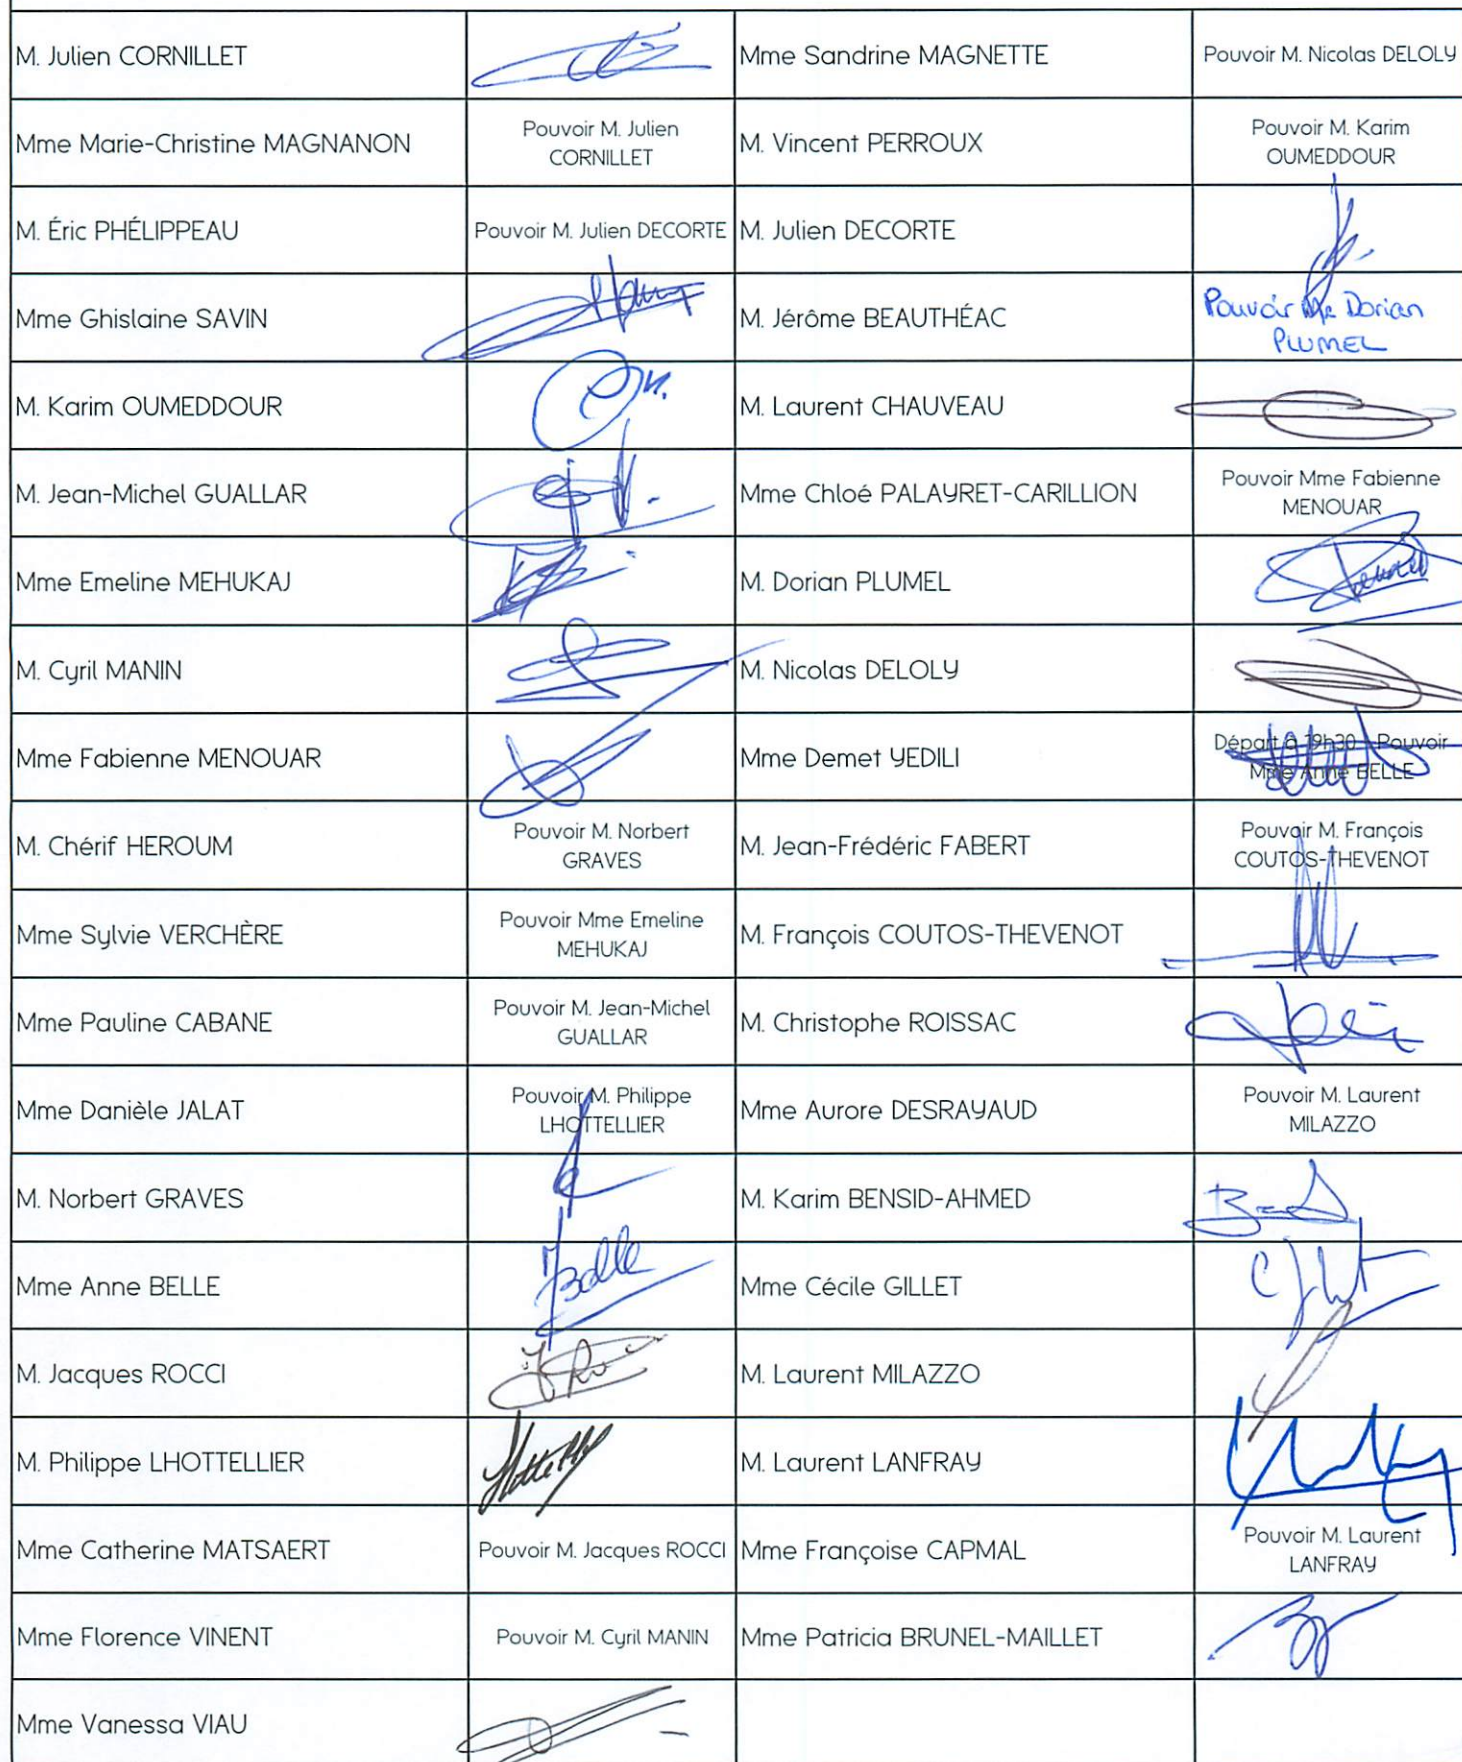 M. Julien CORNILLET
Mme Sandrine MAGNETTE
Pouvoir M. Nicolas DELOLY
Mme Marie-Christine MAGNANON
Pouvoir M. Julien
CORNILLET
M. Vincent PERROUX
Pouvoir M. Karim
OUMEDDOUR
M. Éric PHÉLIPPEAU
Pouvoir M. Julien DECORTE
M. Julien DECORTE
Mme Ghislaine SAVIN
M. Jérôme BEAUTHÉAC
Pouvoir Dorian
PLUMEL
M. Karim OUMEDDOUR
M. Laurent CHAUVEAU
M. Jean-Michel GUALLAR
Mme Chloé PALAYRET-CARILLION
Pouvoir Mme Fabienne
MENOUAR
Mme Emeline MEHUKAJ
M. Dorian PLUMEL
M. Cyril MANIN
M. Nicolas DELOLY
Mme Fabienne MENOUAR
Mme Demet YEDILI
Départ à 19h30 Pouvoir
Mme Anne BELLE
M. Chérif HEROUM
Pouvoir M. Norbert
GRAVES
M. Jean-Frédéric FABERT
Pouvoir M. François
COUTOS-THEVENOT
Mme Sylvie VERCHÈRE
Pouvoir Mme Emeline
MEHUKAJ
M. François COUTOS-THEVENOT
Mme Pauline CABANE
Pouvoir M. Jean-Michel
GUALLAR
M. Christophe ROISSAC
Mme Danièle JALAT
Pouvoir M. Philippe
LHOTTELLIER
Mme Aurore DESRAYAUD
Pouvoir M. Laurent
MILAZZO
M. Norbert GRAVES
M. Karim BENSID-AHMED
Mme Anne BELLE
Belle
Mme Cécile GILLET
M. Jacques ROCCI
M. Laurent MILAZZO
M. Philippe LHOTTELLIER
M. Laurent LANFRAY
Mme Catherine MATSAERT
Pouvoir M. Jacques ROCCI
Mme Françoise CAPMAL
Pouvoir M. Laurent
LANFRAY
Mme Florence VINENT
Pouvoir M. Cyril MANIN
Mme Patricia BRUNEL-MAILLET
Mme Vanessa VIAU